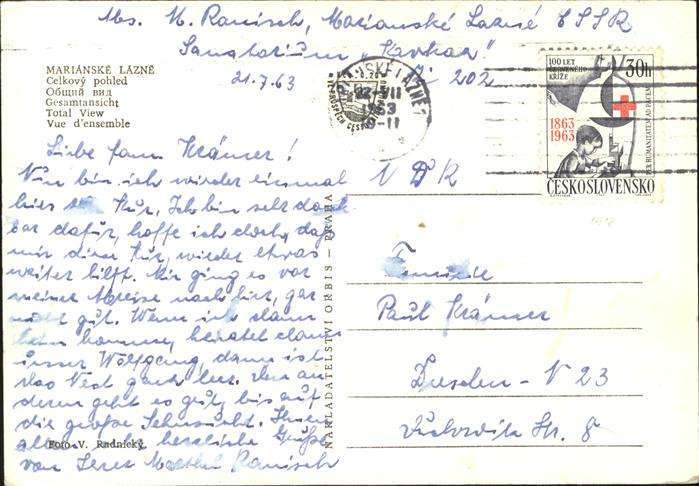 Abs. M. Ranisch, Marianské Lazně ČSSR
Sanatorium „Kavkaz"
21.7.63 202
MARIÁNSKÉ LÁZNĚ
Celkový pohled
Общий вид
Gesamtansicht
Total View
Vue d'ensemble
MARIÁNSKÉ LÁZNĚ 1
22.VII
63
-11
100 LET
ČERVENÉHO
KŘÍŽE
30h
1863
1963
PER HUMANITATEM AD PACEM
ČESKOSLOVENSKO
Liebe Fam. Krämer!
Nun bin ich wieder einmal
hier zur Kur. Ich bin sehr dank
bar dafür, hoffe ich doch, daß
mir diese Kur, wieder etwas
weiter hilft. Mir ging es vor
meiner Abreise nach hier, gar
nicht gut. Wenn ich dann
heim komme, heiratet dann
unser Wolfgang, dann ist
das Nest ganz leer. Den an
deren geht es gut, bis auf
die große Sehnsucht. Ihnen
allen herzliche Grüße
von Ihrer Ranisch
Foto V. Radnický
NAKLADATELSTVÍ ORBIS – PRAHA
DDR
Familie
Paul Krämer
Dresden - N 23
Str. 8